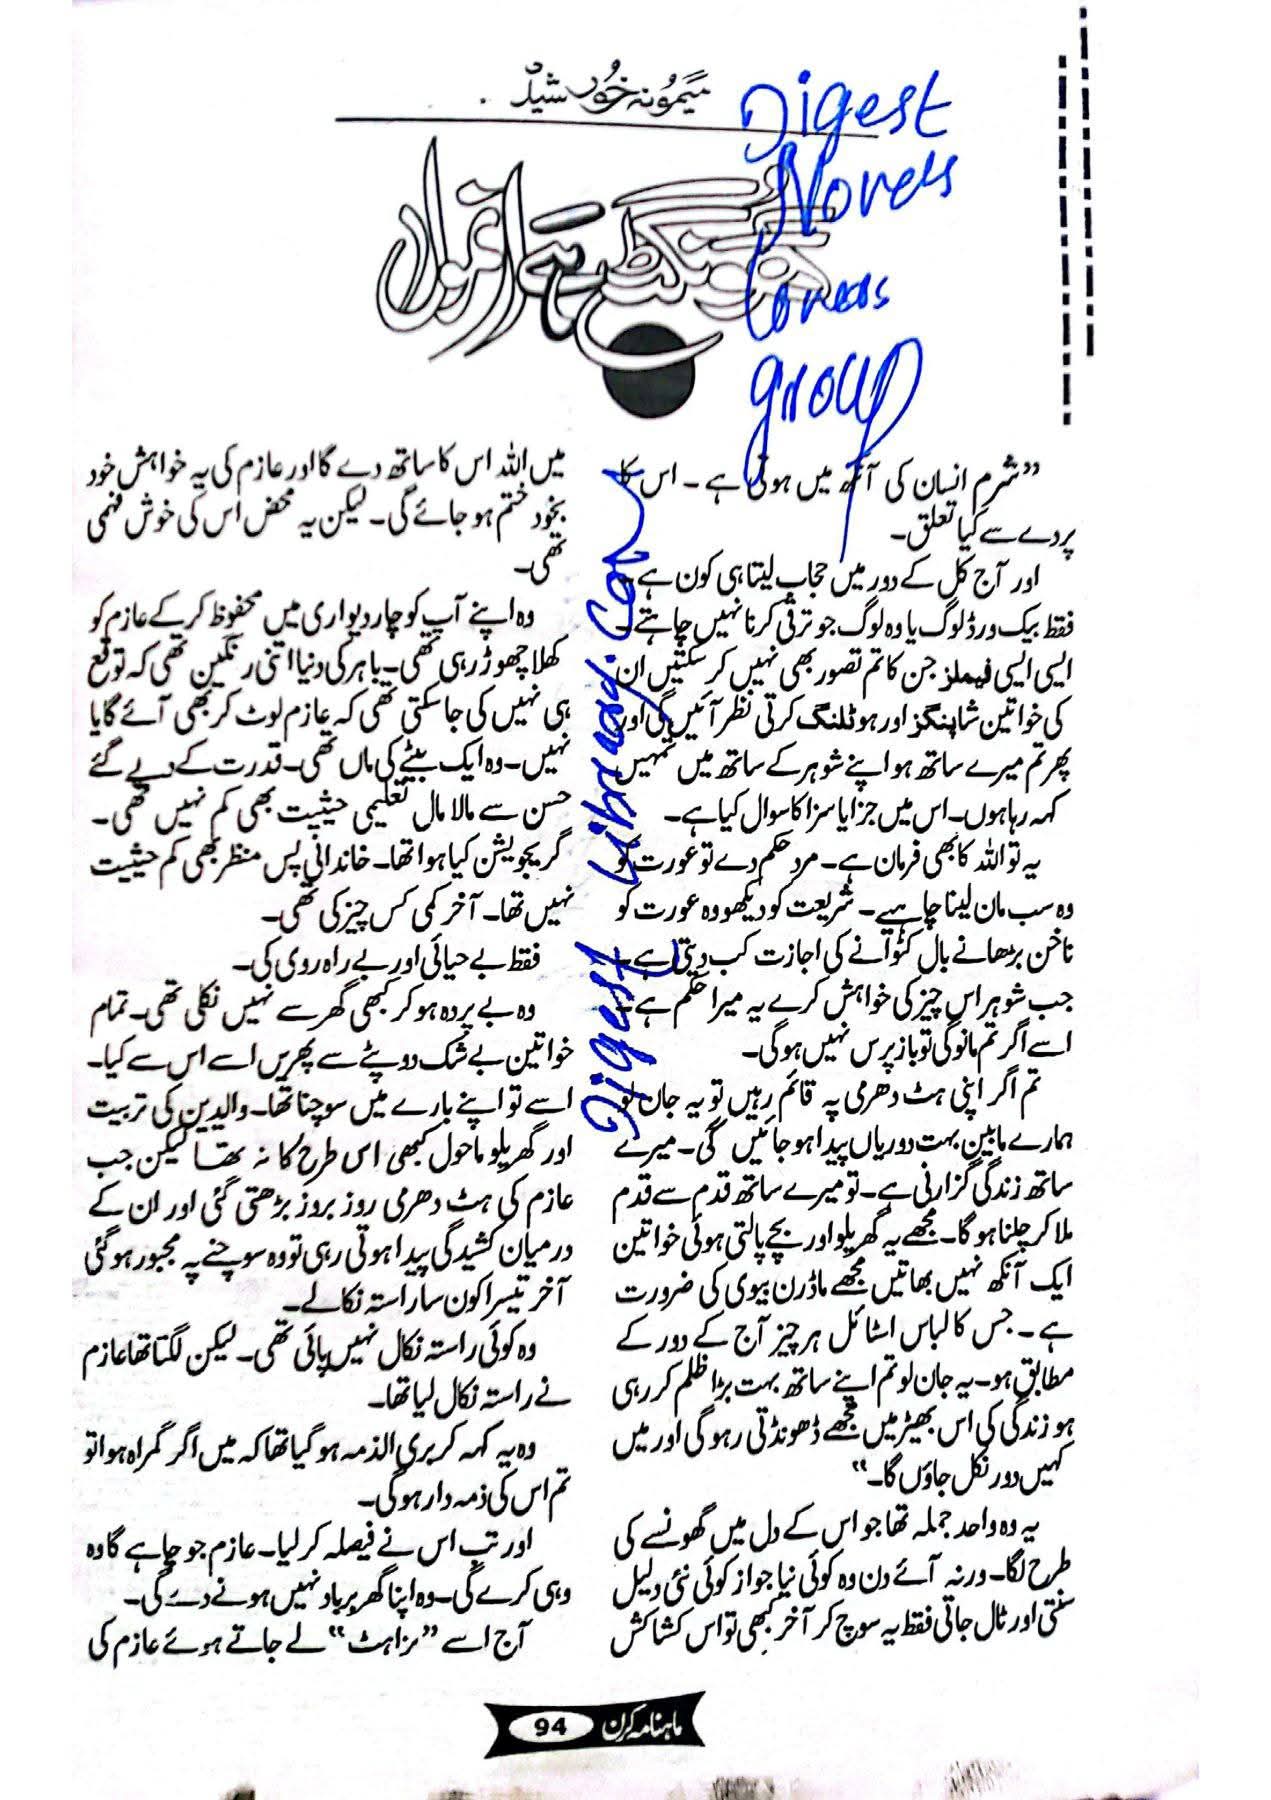 میمونہ خورشید
گھونگٹ ہے ارغواں
Digest
Novels
Lovers
group
Digest Library.com
”شرم انسان کی آنکھ میں ہوتی ہے۔ اس کا
پردے سے کیا تعلق۔
اور آج کل کے دور میں حجاب لیتا ہی کون ہے۔
فقط بیک ورڈ لوگ یا وہ لوگ جو ترقی کرنا نہیں چاہتے۔
ایسی ایسی فیملز جن کا تم تصور بھی نہیں کر سکتیں ان
کی خواتین شاپنگز اور ہوٹلنگ کرتی نظر آئیں گی اور
پھر تم میرے ساتھ ہو اپنے شوہر کے ساتھ میں تمہیں
کہہ رہا ہوں۔ اس میں جزا یا سزا کا سوال کیا ہے۔
یہ تو اللہ کا بھی فرمان ہے۔ مرد حکم دے تو عورت کو
وہ سب مان لینا چاہیے۔ شریعت کو دیکھو وہ عورت کو
ناخن بڑھانے بال کٹوانے کی اجازت کب دیتی ہے۔
جب شوہر اس چیز کی خواہش کرے یہ میرا حکم ہے۔
اسے اگر تم مانو گی تو باز پرس نہیں ہوگی۔
تم اگر اپنی ہٹ دھرمی پہ قائم رہیں تو یہ جان لو
ہمارے مابین بہت دوریاں پیدا ہو جائیں گی۔ میرے
ساتھ زندگی گزارنی ہے۔ تو میرے ساتھ قدم سے قدم
ملا کر چلنا ہو گا۔ مجھے یہ گھریلو اور بچے پالتی ہوئی خواتین
ایک آنکھ نہیں بھاتیں مجھے ماڈرن بیوی کی ضرورت
ہے۔ جس کا لباس اسٹائل ہر چیز آج کے دور کے
مطابق ہو۔ یہ جان لو تم اپنے ساتھ بہت بڑا ظلم کر رہی
ہو زندگی کی اس بھیڑ میں مجھے ڈھونڈتی رہو گی اور میں
کہیں دور نکل جاؤں گا۔“
یہ وہ واحد جملہ تھا جو اس کے دل میں گھونسے کی
طرح لگا۔ ورنہ آئے دن وہ کوئی نیا جواز کوئی نئی دلیل
سنتی اور ٹال جاتی فقط یہ سوچ کر آخر کبھی تو اس کشاکش
میں اللہ اس کا ساتھ دے گا اور عازم کی یہ خواہش خود
بخود ختم ہو جائے گی۔ لیکن یہ محض اس کی خوش فہمی
تھی۔
وہ اپنے آپ کو چار دیواری میں محفوظ کر کے عازم کو
کھلا چھوڑ رہی تھی۔ باہر کی دنیا اتنی رنگین تھی کہ توقع
ہی نہیں کی جا سکتی تھی کہ عازم لوٹ کر بھی آئے گا یا
نہیں۔ وہ ایک بیٹے کی ماں تھی۔ قدرت کے دیے گئے
حسن سے مالا مال تعلیمی حیثیت بھی کم نہیں تھی۔
گریجویشن کیا ہوا تھا۔ خاندانی پس منظر بھی کم حیثیت
نہیں تھا۔ آخر کمی کس چیز کی تھی۔
فقط بے حیائی اور بے راہ روی کی۔
وہ بے پردہ ہو کر کبھی گھر سے نہیں نکلی تھی۔ تمام
خواتین بے شک دوپٹے سے پھریں اسے اس سے کیا۔
اسے تو اپنے بارے میں سوچنا تھا۔ والدین کی تربیت
اور گھریلو ماحول کبھی اس طرح کا نہ تھا لیکن جب
عازم کی ہٹ دھرمی روز بروز بڑھتی گئی اور ان کے
درمیان کشیدگی پیدا ہوتی رہی تو وہ سوچنے پہ مجبور ہو گئی
آخر تیسرا کون سا راستہ نکالے۔
وہ کوئی راستہ نکال نہیں پائی تھی۔ لیکن لگتا تھا عازم
نے راستہ نکال لیا تھا۔
وہ یہ کہہ کر بری الذمہ ہو گیا تھا کہ میں اگر گمراہ ہوا تو
تم اس کی ذمہ دار ہو گی۔
اور تب اس نے فیصلہ کر لیا۔ عازم جو چاہے گا وہ
وہی کرے گی۔ وہ اپنا گھر برباد نہیں ہونے دے گی۔
آج اسے ”زاہٹ“ لے جاتے ہوئے عازم کی
ماہنامہ کرن 94